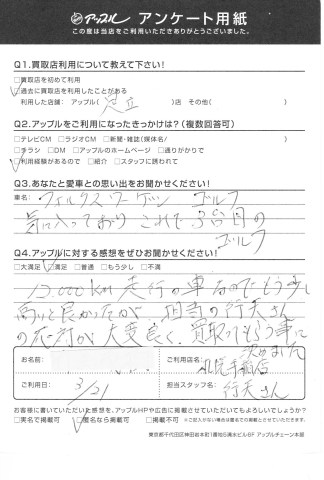 アップル アンケート用紙
この度は当店をご利用いただきありがとうございました。
Q1.買取店利用について教えて下さい!
□買取店を初めて利用
☑過去に買取店を利用したことがある
利用した店舗: アップル( 足立 )店 その他( )
Q2.アップルをご利用になったきっかけは?(複数回答可)
□テレビCM □ラジオCM □新聞・雑誌(媒体名/ )
□チラシ □DM □アップルのホームページ □通りがかりで
☑利用経験があるので □紹介 □スタッフに誘われて
Q3.あなたと愛車との思い出をお聞かせください!
車名: フォルクスワーゲン ゴルフ
気に入っており これで 3台目の
ゴルフ
Q4.アップルに対する感想をぜひお聞かせください!
□大満足 ☑満足 □普通 □もう少し □不満
12,000km 走行の車なのでもう少し
高いと良かったが、担当の行天さん
の応対が大変良く、買取ってもらう事に
決めました
お名前:
ご利用店名: 札幌手稲店
ご利用日: 3/21
担当スタッフ名: 行天さん
お客様に書いていただいた感想を、アップルHPや広告に掲載させていただいてもよろしいでしょうか?
□実名で掲載可 ☑匿名なら掲載可 □掲載不可 ※ご記入がない場合は匿名で掲載させていただきますので、ご了承ください。
東京都千代田区神田岩本町1番地5清水ビル6F アップルチェーン本部